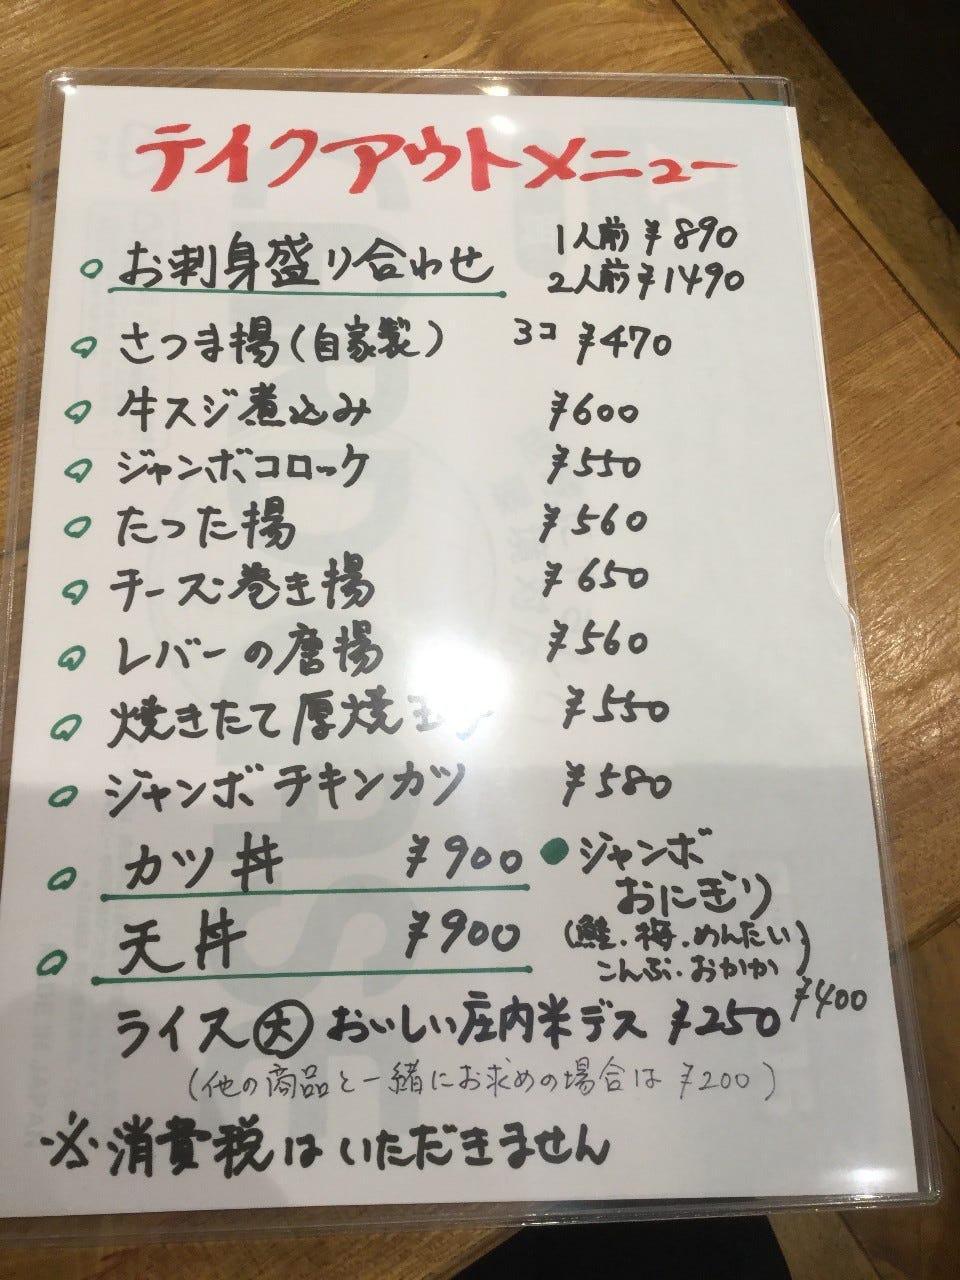 テイクアウトメニュー
お刺身盛り合わせ 1人前 ¥890
2人前 ¥1490
さつま揚(自家製) 3コ ¥470
牛スジ煮込み ¥600
ジャンボコロッケ ¥550
たった揚 ¥560
チーズ巻き揚 ¥650
レバーの唐揚 ¥560
焼きたて厚焼玉 ¥550
ジャンボチキンカツ ¥580
カツ丼 ¥900
天丼 ¥900
●ジャンボ
おにぎり
(鮭・梅・めんたい
こんぶ・おかか)
¥400
ライス大 おいしい庄内米デス ¥250
(他の商品と一緒にお求めの場合は ¥200)
※消費税はいただきません